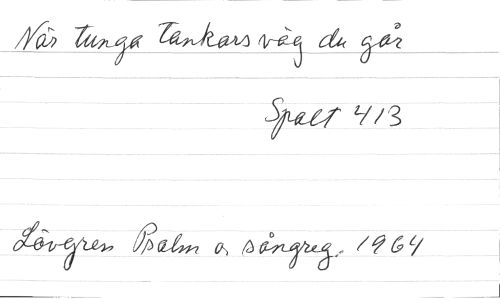 När tunga tankars väg du går
Spalt 413
Lövgren Psalm o. sångreg. 1964